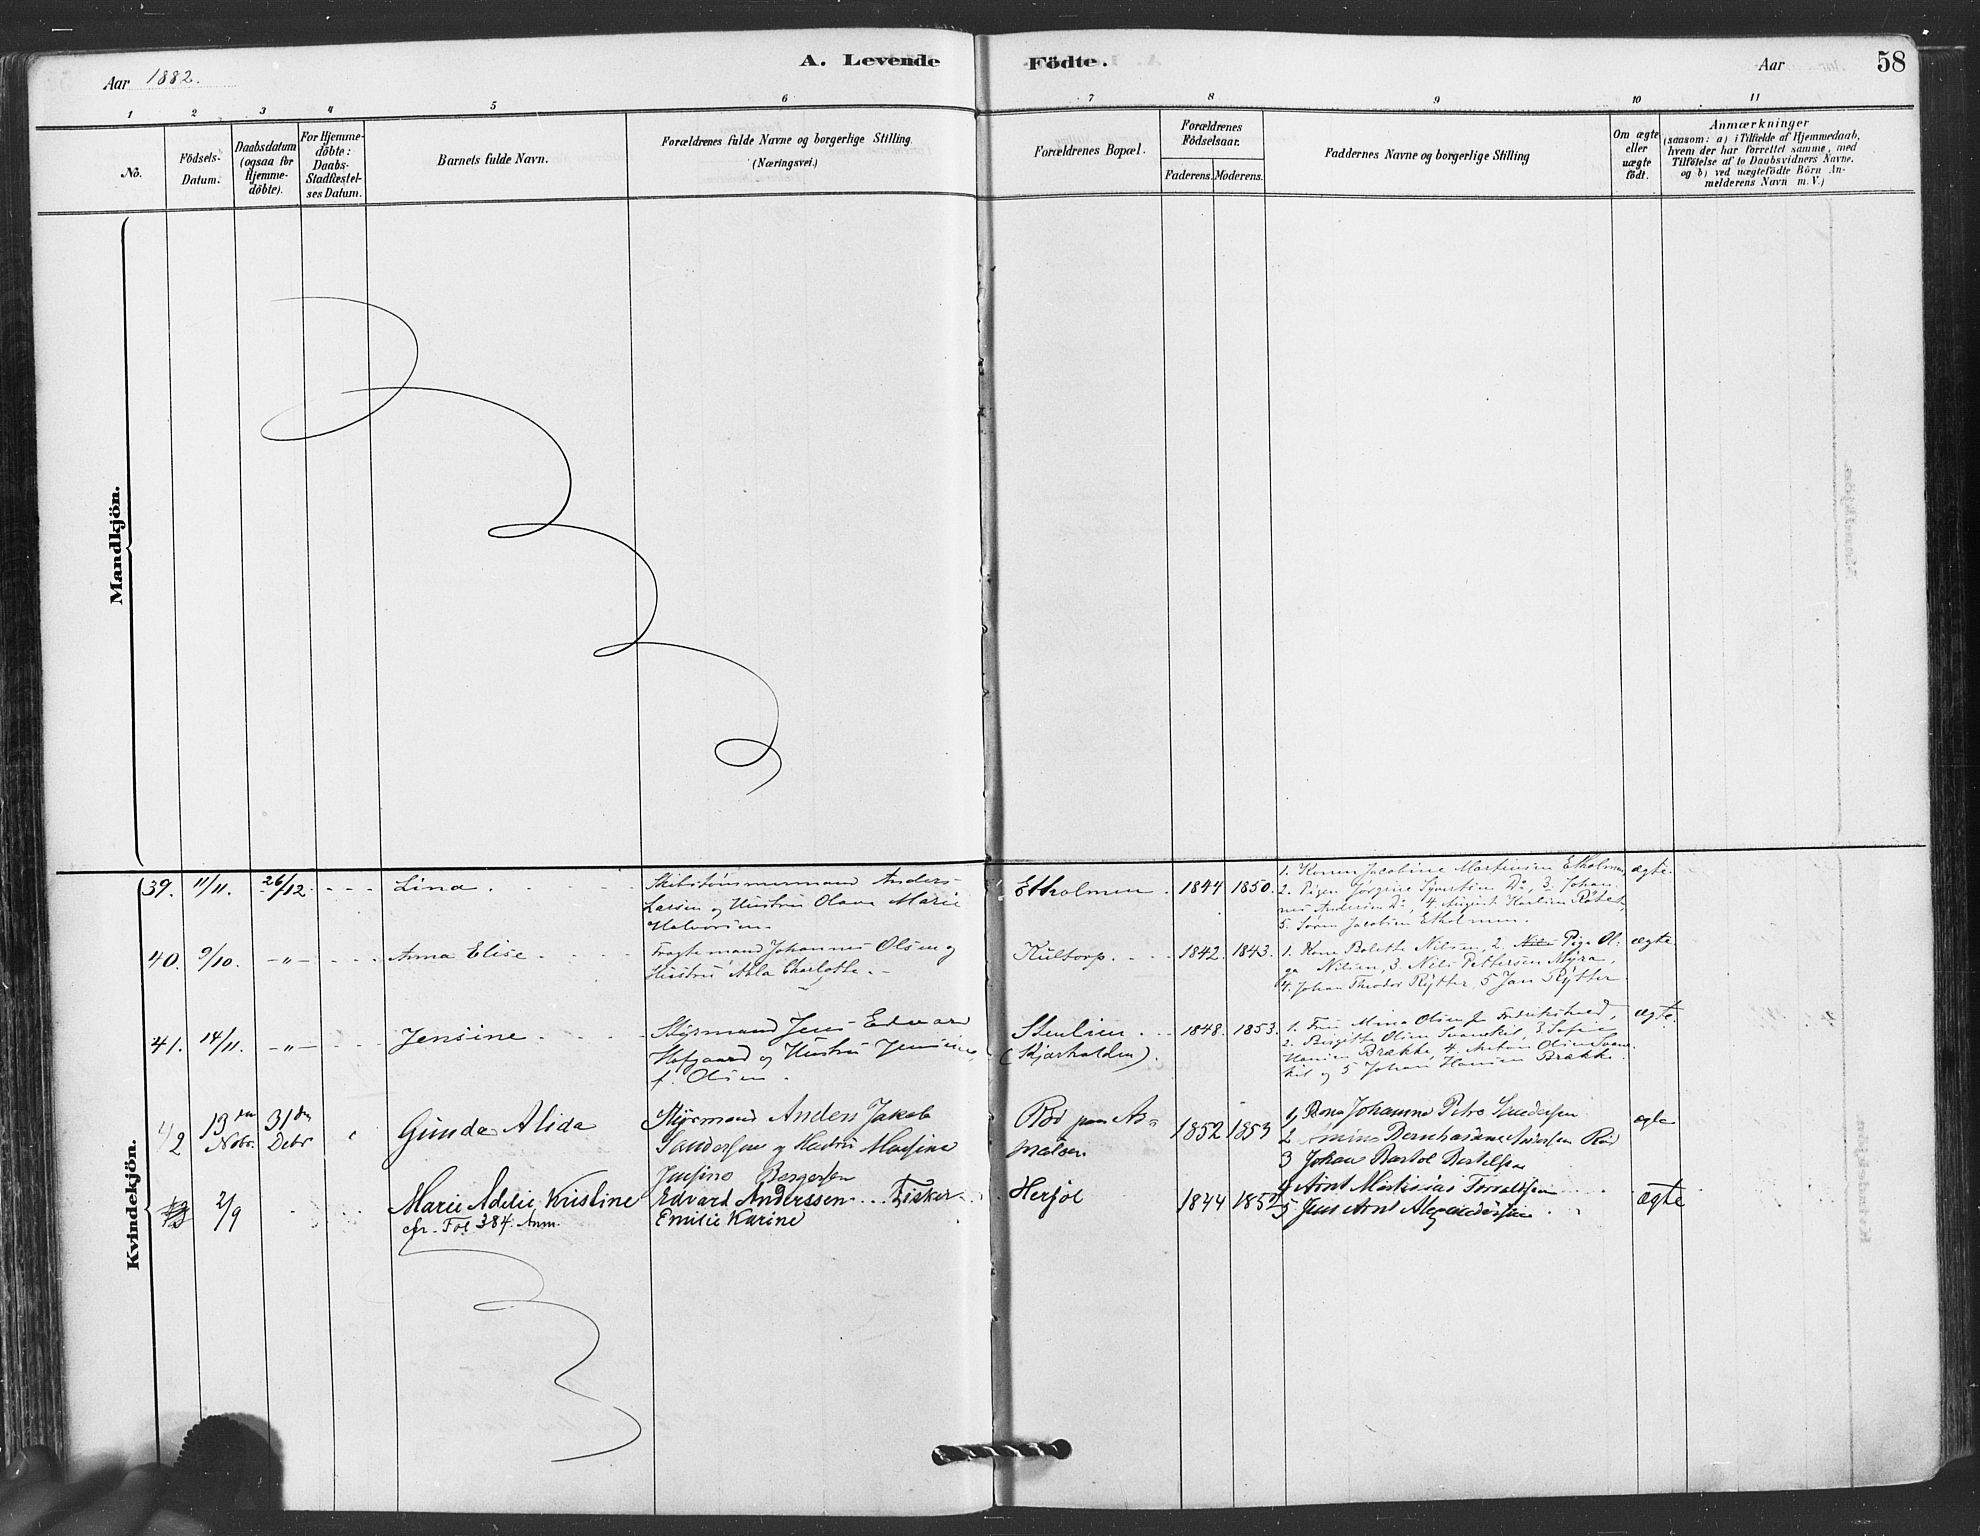 Aar 1882.
A. Levende Födte.
Aar
58
1 2 3 4 5 6 7 8 9 10 11
No.
Födsels-
Datum.
Daabsdatum
(ogsaa for
Hjemme-
döbte).
For Hjemme-
döbte:
Daabs-
Stadfæstel-
ses Datum.
Barnets fulde Navn.
Forældrenes fulde Navne og borgerlige Stilling.
(Næringsvei.)
Forældrenes Bopæl.
Forældrenes
Födselsaar.
Faderens. Moderens.
Faddernes Navne og borgerlige Stilling
Om ægte
eller
uægte
födt.
Anmærkninger
(saasom: a) i Tilfælde af Hjemmedaab,
hvem der har forrettet samme, med
Tilföielse af to Daabsvidners Navne.
og b) ved uægtefödte Börn An-
melderens Navn m. V.)
Mandkjön.
Kvindekjön.
39. 11/11. 26/12. - - - Lina.
Skibstömmermand Anders
Larsen og Hustru Olava Marie
Halvorsen.
Etholmen. 1844 1850.
1. Konen Jacobine Martinsen Etholmen,
2. Pigen Jörgine Syvertsen Do, 3. Johan-
nes Andersen Do, 4. August Karlsen
5. Sören Jacobsen Etholmen.
ægte.
40. 9/10. -"- Anna Elise.
Fragtemand Johannes Olsen og
Hustru Abla Charlotte. -
Kultorp. 1842. 1843.
1. Kone Bolette Nilsen, 2. Pige Ol-
ga Nilsen, 3. Nils Pettersen Myra,
4. Johan Theodor Rytter, 5 Jan Rytter
ægte
41. 14/11. -"- Jensine.
Styrmand Jens Edvard
Hofgaard og Hustru Jensine
f. Olsen.
Stenlien
(Skjærhalden).
1848. 1853.
1. Fru Mina Olsen fr Fredrikstad,
2. Birgitte Olsen Svanekil, 3 Sofie
Hansen Brække, 4. Anton Olsen Svane-
kil og 5 Johan Hansen Brække.
ægte.
42 13den Novbr. 31den Decbr Gunda Alida
Styrmand Anders Jakob
Sandersen og Hustru
Bergersen
Rød paa As-
maløen
1852 1853
1 Kone Johanne Petra Sandersen
2 Rød
3 Johan Bertelsen
4 Arnt
5 Jens Arnt
ægte
2/9 Marie Adelie Kristine
cfr. Fol 384. Anm.
Edvard Anderssen Fisker
Emilie Karine
Herføl 1844 1852 ægte